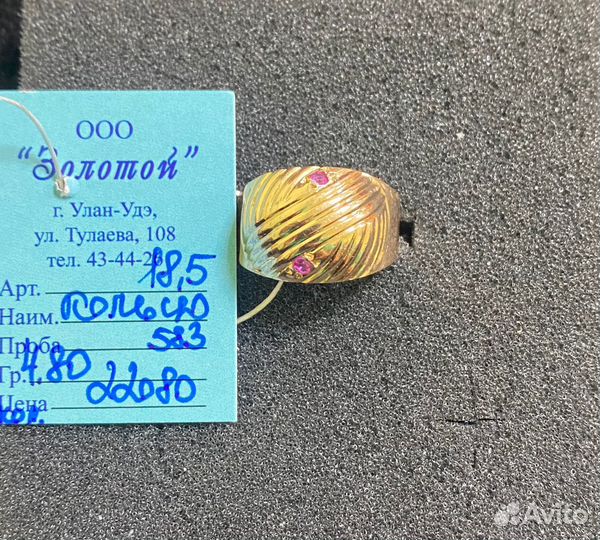 ООО
“Золотой”
г. Улан-Удэ,
ул. Тулаева, 108
тел. 43-44-26
18,5
Арт.
Наим. кольцо
Проба 583
Гр. 4.80
Цена 22080
Avito